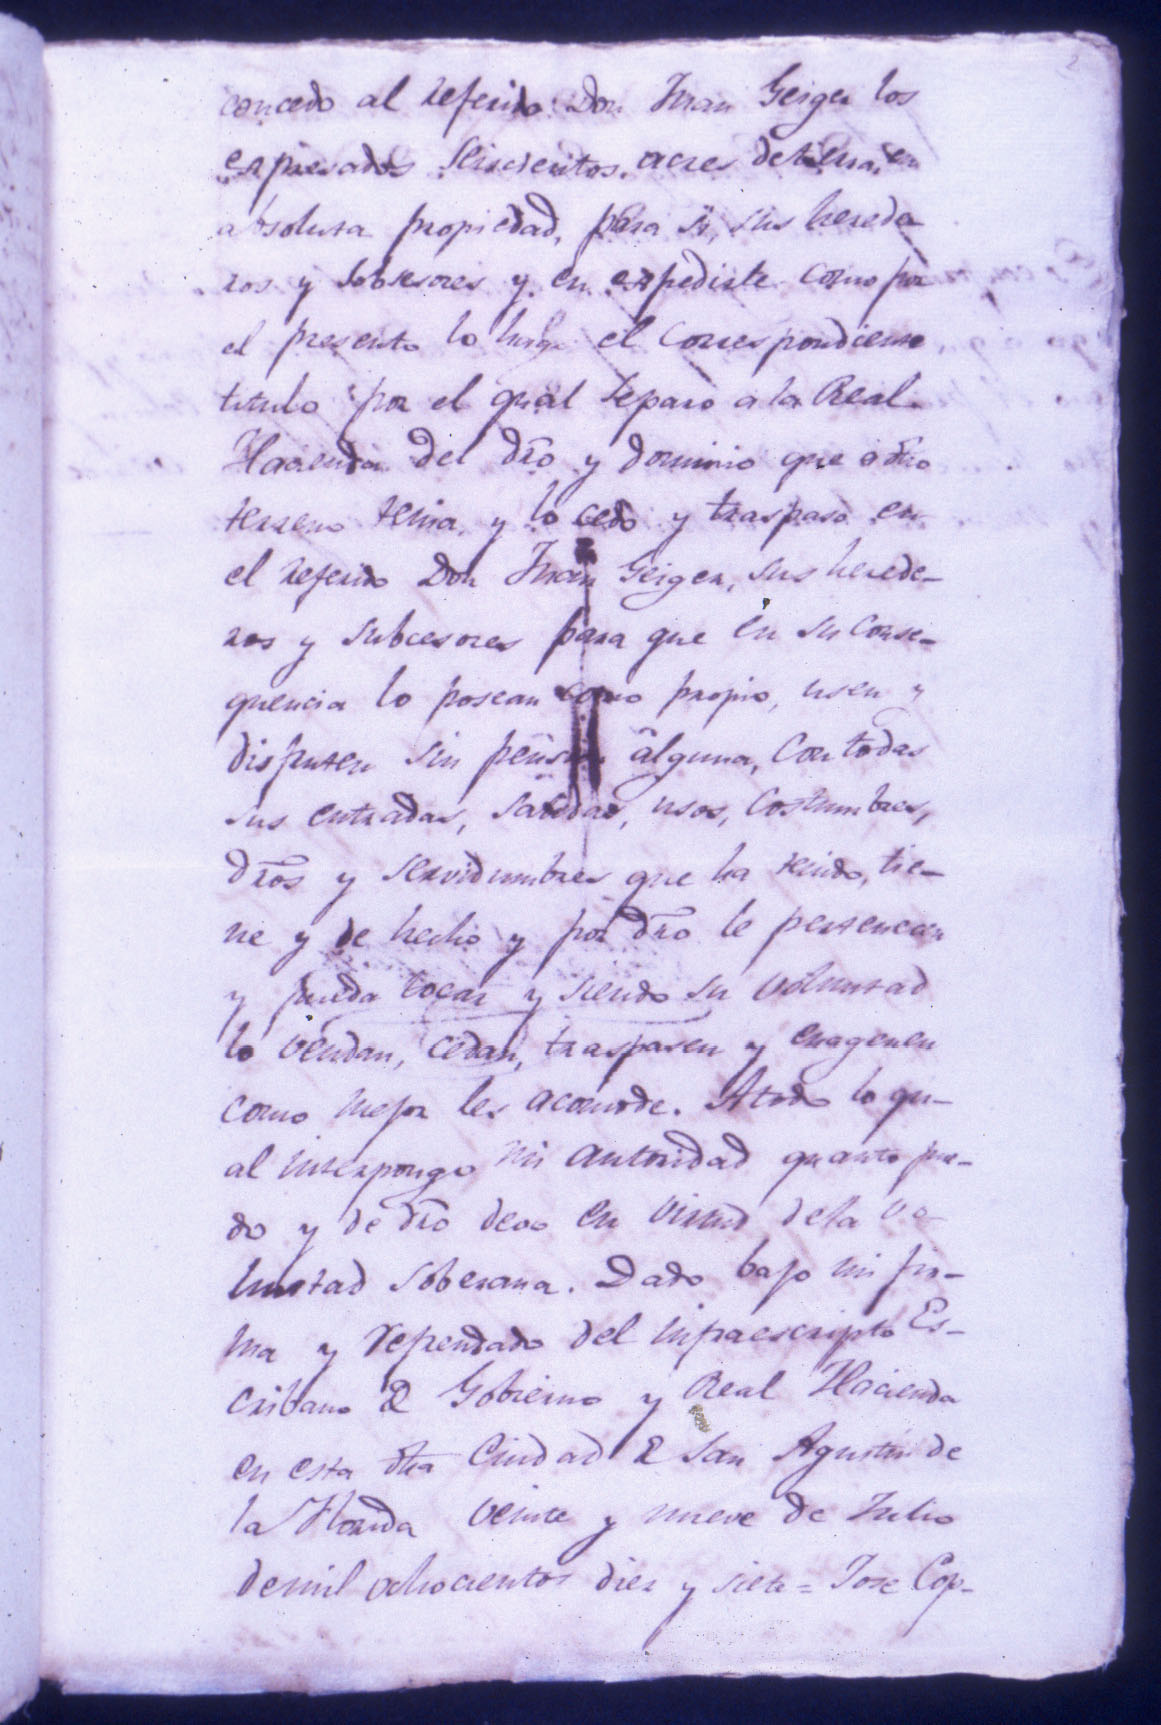 2
concedo al referido Don Juan Geiger los
expresados seiscientos acres de tierra en
absoluta propiedad, para si, sus herede
ros y sobsesores y en expedirle como por
el presente lo hago el correspondiente
titulo por el qual separo a la Real
Hacienda del dro y dominio que a dho
terreno tenia y lo cedo y traspaso en
el referido Don Juan Geiger, sus herede-
ros y subcesores para que en su conse-
quencia lo posean como propio, usen y
disfruten sin pension alguna, con todas
sus entradas, salidas, usos, costumbres,
dros y servidumbres que ha tenido, tie-
ne y de hecho y por dro le pertenecen
y pueda tocar y siendo su voluntad
lo vendan, cedan, traspasen y enagenen
como mejor les acomode. A todo lo qu-
al interpongo mi autoridad quanto pue-
do y de dro devo en virtud de la vo-
luntad soberana. Dado bajo mi fir-
ma y refrendado del infraescripto Es-
cribano de Gobierno y Real Hacienda
en esta dha Ciudad de San Agustin de
la Florida veinte y nueve de Julio
de mil ochocientos diez y siete = Jose Cop-